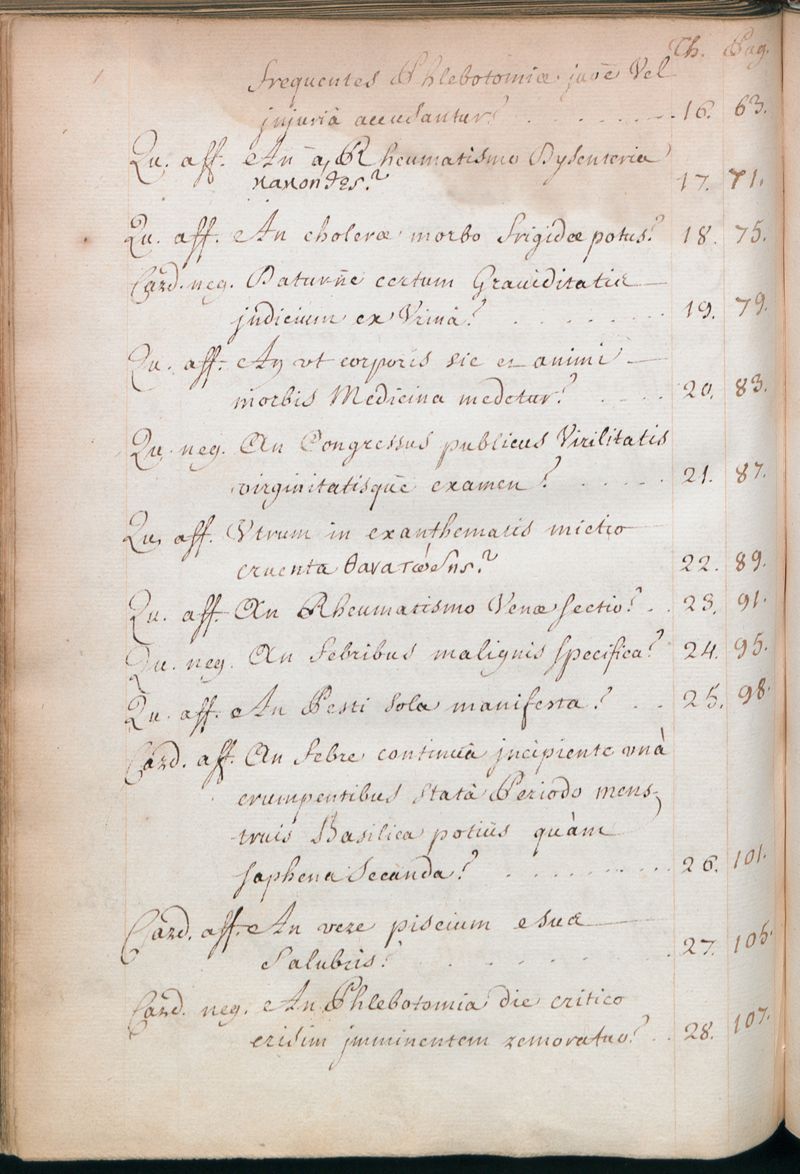 Th. Pag.
frequentes Phlebotomiæ jure Vel
injuriâ accusantur? . . . . . . . 16. 63.
Qu. aff. An à Rheumatismo Dysenteria
κακοηδες? 17. 71.
Qu. aff. An choleræ morbo frigidæ potus? 18. 75.
Card. neg. Daturne certum Graviditatis
judicium ex Urinâ? . . . . . . 19. 79.
Qu. aff. An vt corporis sic et animi
morbis Medicina medetur? . . . . 20. 83.
Qu. neg. An Congressus publicus Virilitatis
virginitatisque examen? . . . . . 21. 87.
Qu. aff. Vtrum in exanthematis mictio
cruenta θανατώδης? 22. 89.
Qu. aff. An Rheumatismo Venæ sectio? . . 23. 91.
Qu. neg. An febribus malignis specifica? 24. 95.
Qu. aff. An Pesti sola manifesta? . . 25. 98.
Card. aff. An febre continuâ incipiente unà
erumpentibus statâ Periodo mens,
truis Basilica potiùs quàm
saphena Secanda? . . . . . . . . 26. 101.
Card. aff. An vere piscium esus
Salubris? . . . . . . 27. 105.
Card. neg. An Phlebotomia die critico
crisim jmminentem remoratur? . . 28. 107.